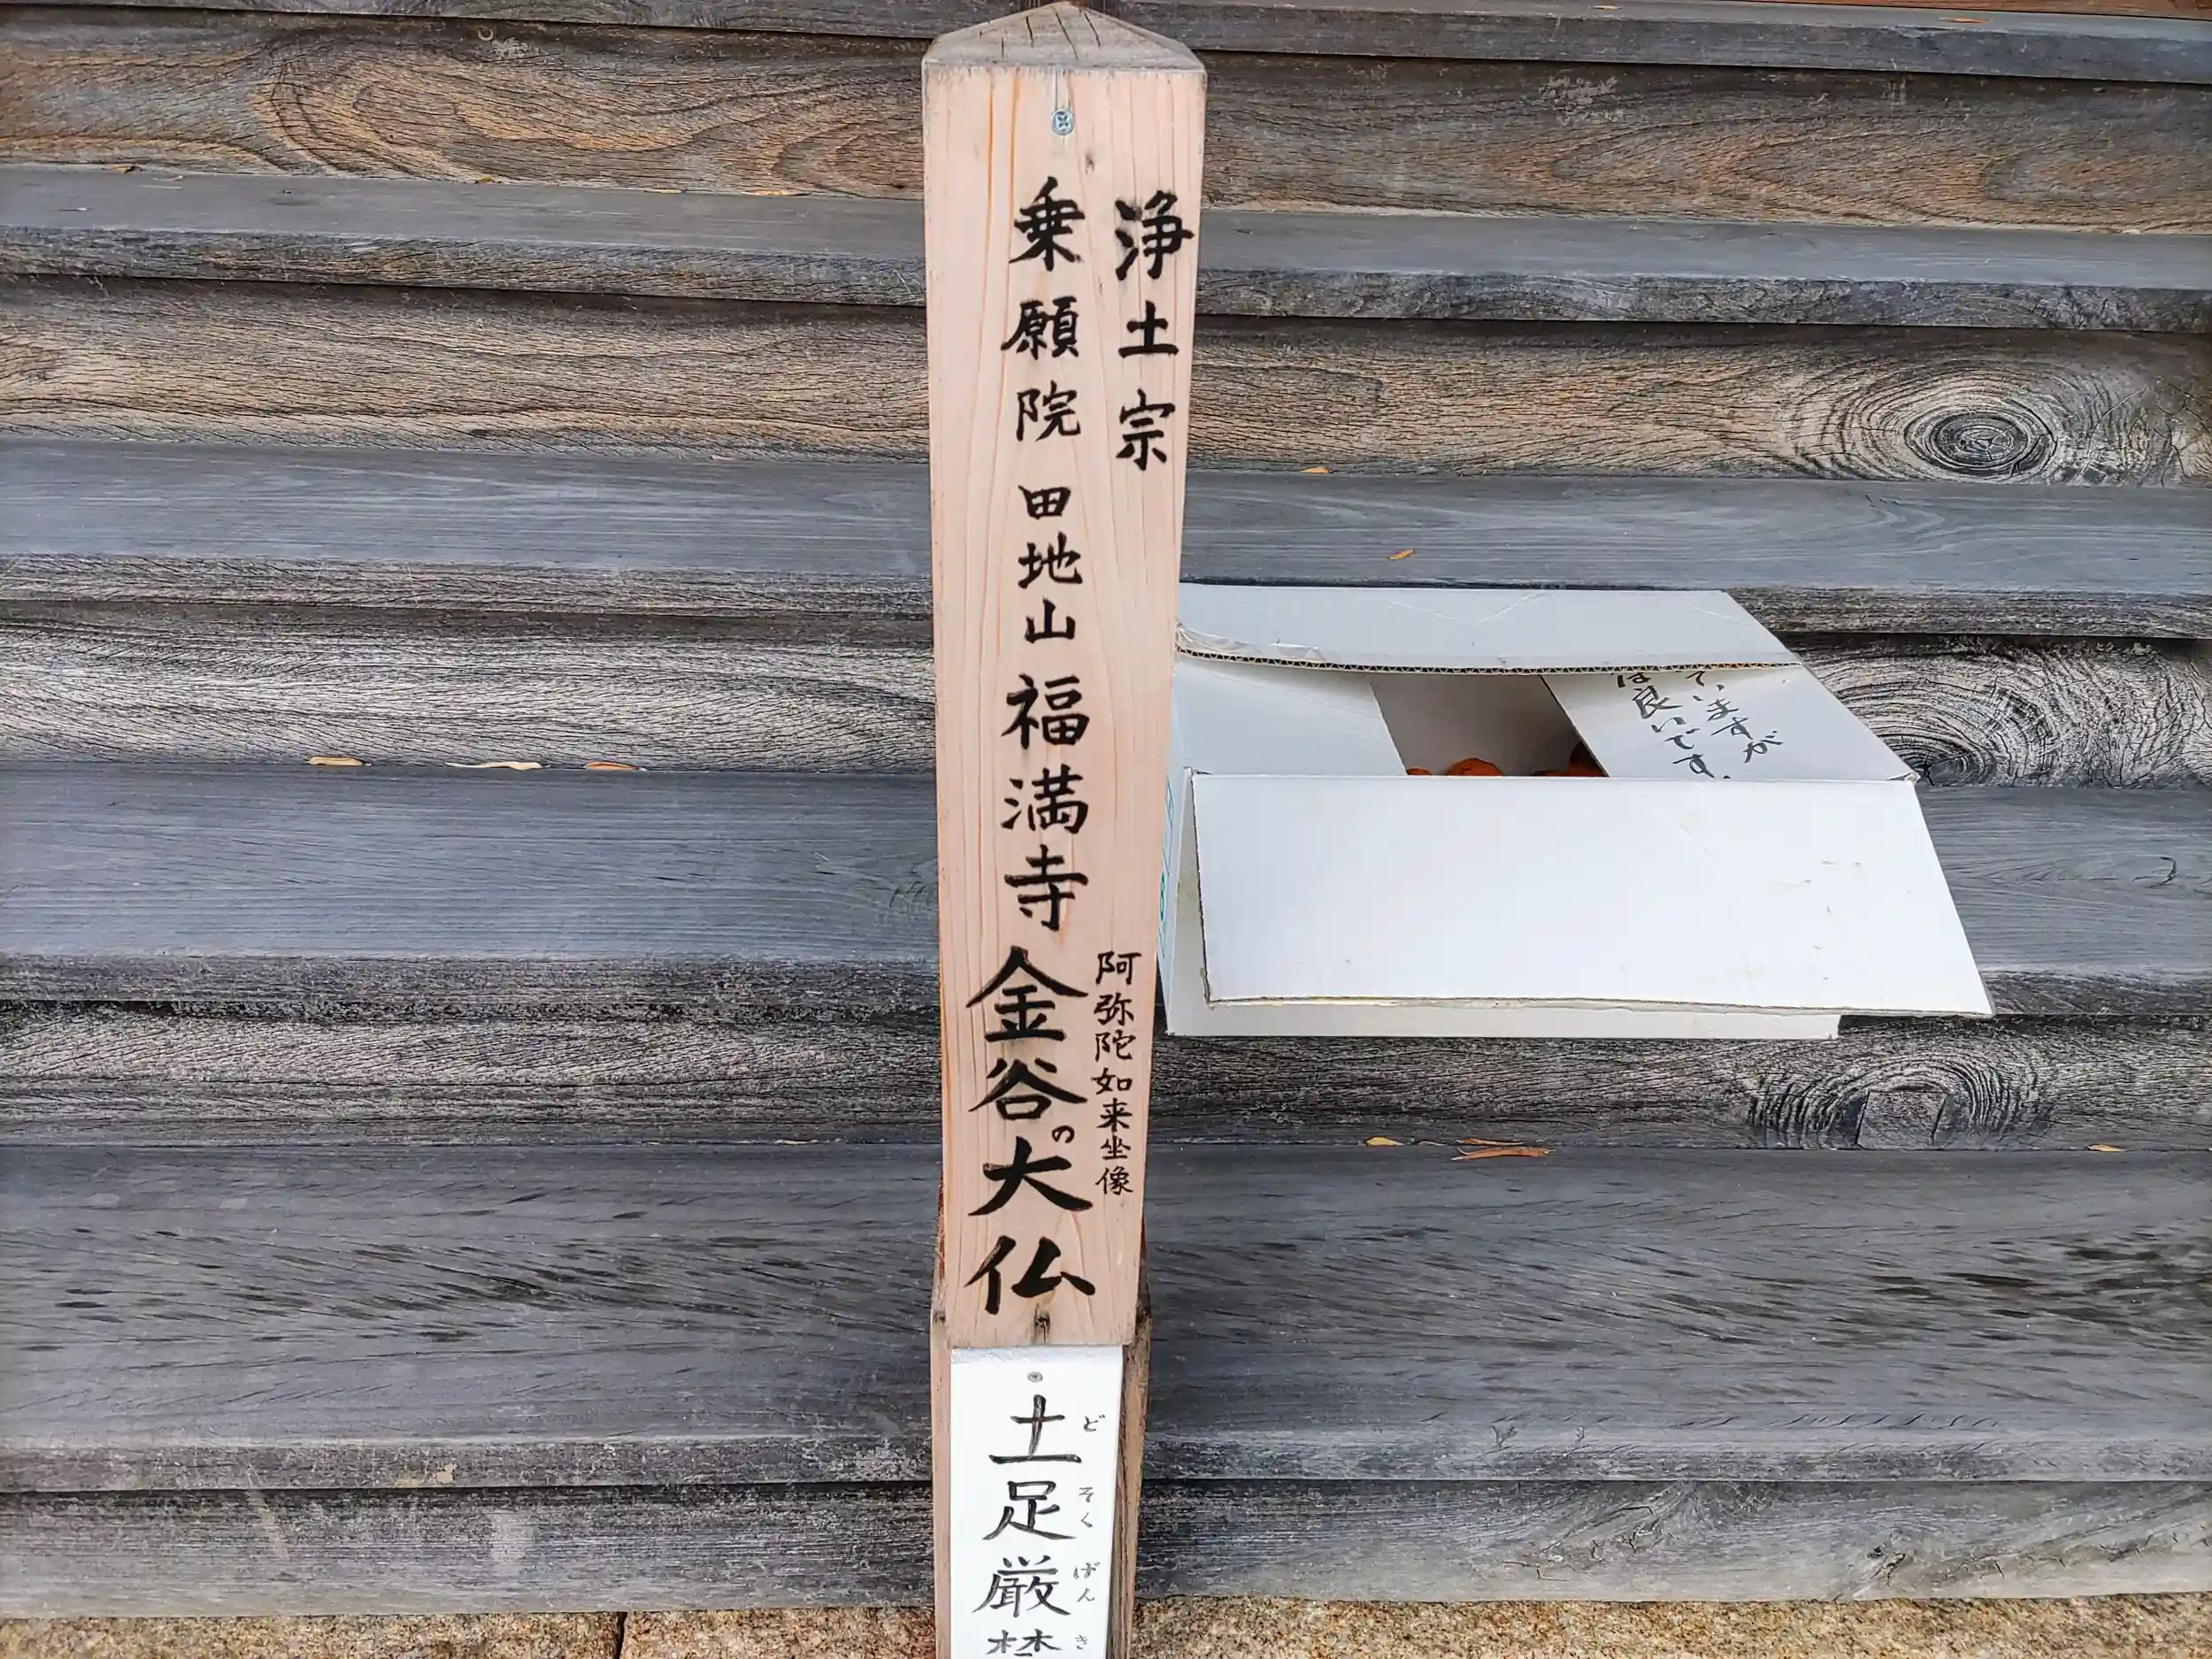 浄土宗
乗願院 田地山 福満寺 金谷の大仏
阿弥陀如来坐像
土足厳禁
どそくげんき
ていますが
は良いです。